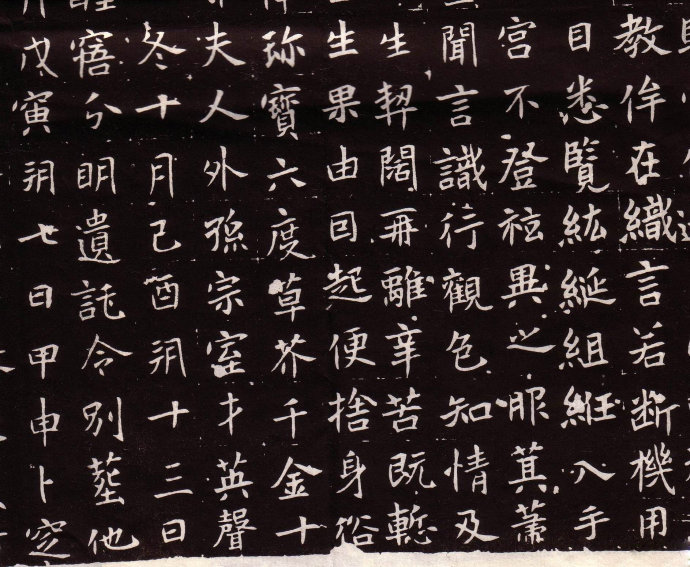 教侔在織言若断機用
目悉覽紘綖組紝入手
宮不登袨異之服萁箒
聞言識行觀色知情及
生契闊再離辛苦既慙
生果由囙起便捨身俗
珎寶六度草芥千金十
夫人外孫宗室才英聲
冬十月己酉朔十三日
寤分明遺託令別塟他
戊寅朔七日甲申卜窆